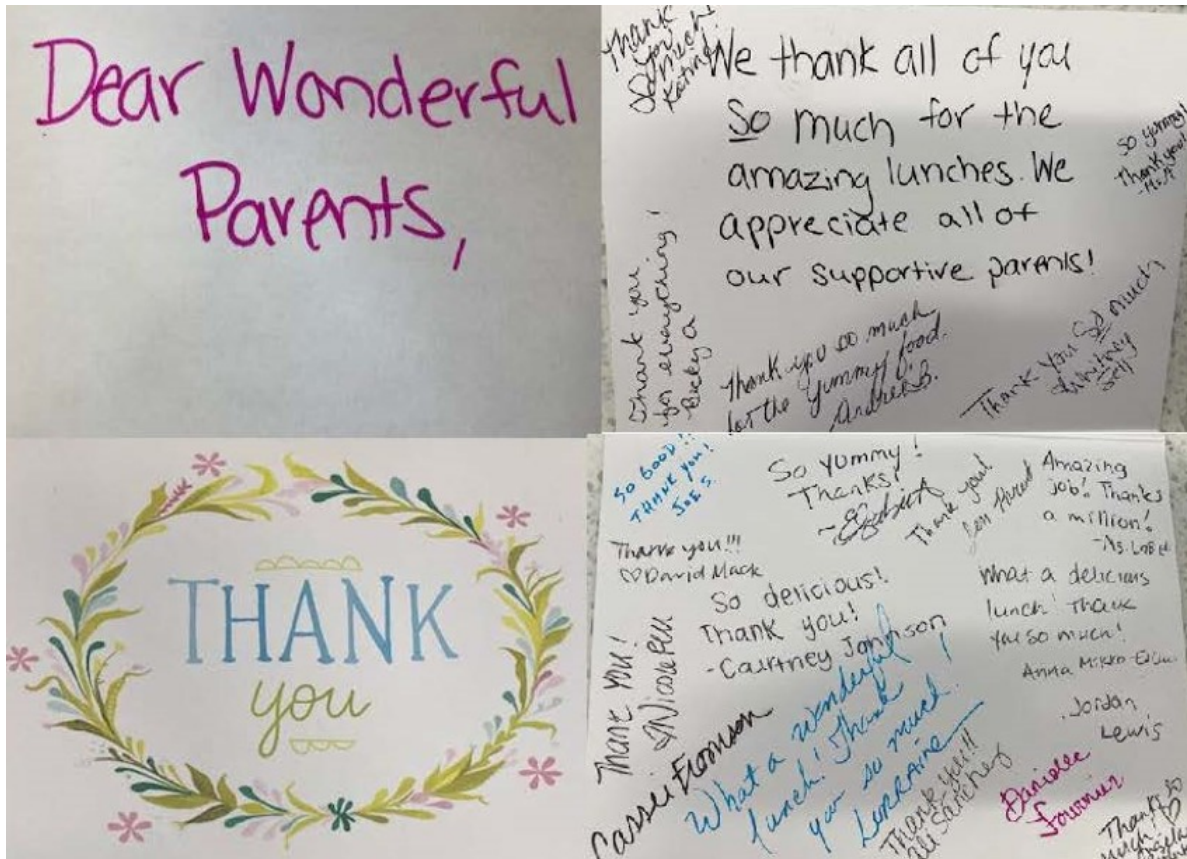 Dear Wonderful
Parents,
Thank
you
so much!
We thank all of you
So much for the
amazing lunches. We
appreciate all of
our supportive parents!
So yummy!
Thank you!
Thank you
for everything!
Becky A
Thank you so much
for the yummy food.
Andrea B.
Thank you So much
Whitney
THANK
you
SO GOOD!!
THANK YOU!
JOE S.
So yummy!
Thanks!
Thank you!
Jen
Amazing
job! Thanks
a million!
Thank you!!!
David Mack
So delicious!
Thank you!
-Courtney Johnson
What a delicious
lunch! Thank
you so much!
Anna
Thank you!
Nicole
Jordan
Lewis
Cassei Fromson
What a wonderful
lunch! Thank
you so much!
Lorraine
Thank-you!!
Sanchez
Danielle
Fournier
Thanks so
much